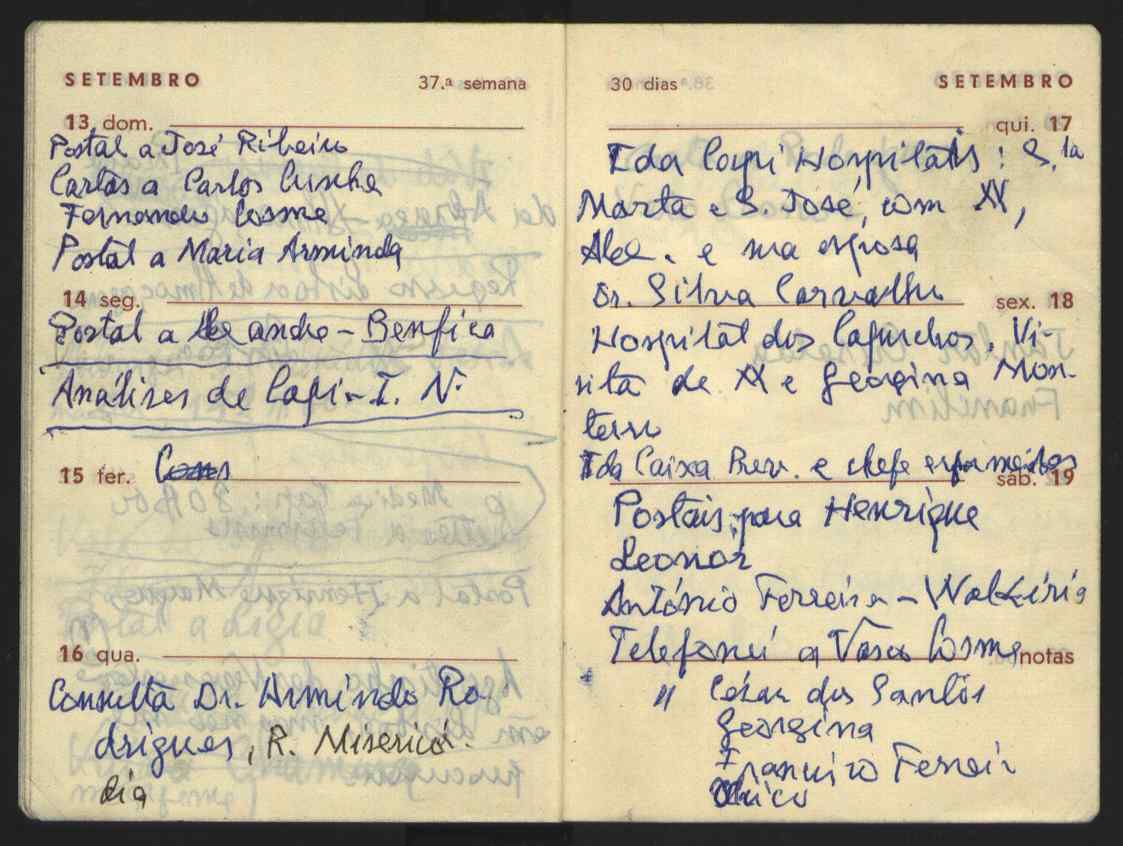 SETEMBRO 37.ª semana
13 dom.
Postal a José Ribeiro
Cartas a Carlos Cunha
Fernando Cosme
Postal a Maria Arminda
14 seg.
Postal a Alexandre - Benfica
Análises de Capi - I. N.
15 ter. Cons
16 qua.
Consulta Dr. Armindo Ro-
drigues, R. Misericór-
dia
30 dias SETEMBRO
qui. 17
Ida Capi Hospitais: S.ta
Marta e S. José, com XX,
Abel. e sua esposa
Dr. Silva Carvalho
sex. 18
Hospital dos Capuchos. Vi-
sita de XX e Georgina Mon-
teiro
Ida Caixa Prev. e chefe
sáb. 19
Postais para Henrique
Leonor
António Ferreira - Walkíria
Telefonei a Vasco Cosme
notas
" César dos Santos
Georgina
Francisco Ferreir
Chico